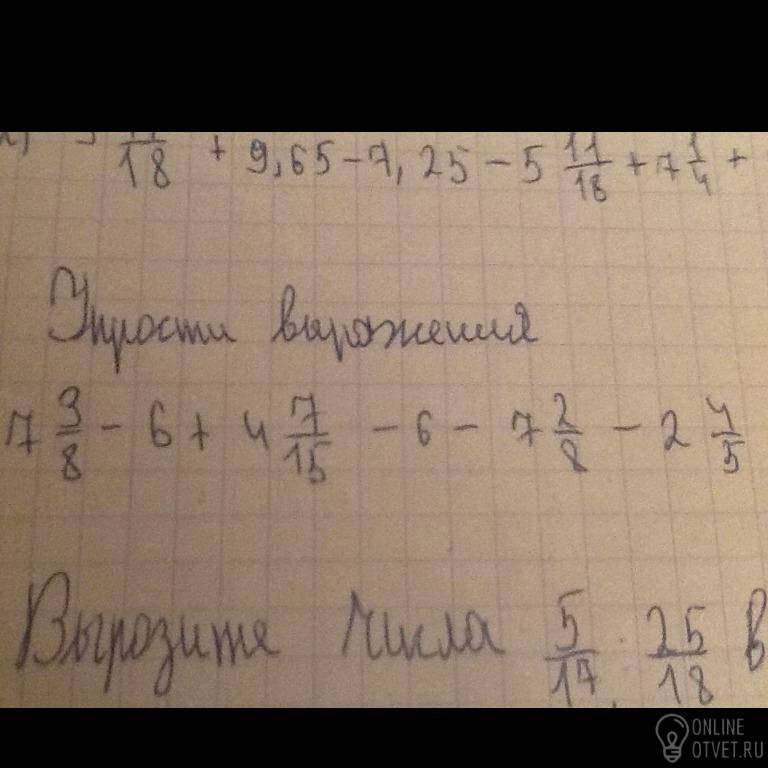 18 + 9,65 - 7,25 - 5 11/18 + 7 1/4 +
Упрости выражения
7 3/8 - 6 + 4 7/15 - 6 - 7 2/8 - 2 4/5
Вырозите числа 5/17, 25/18 в
ONLINE
OTVET.RU